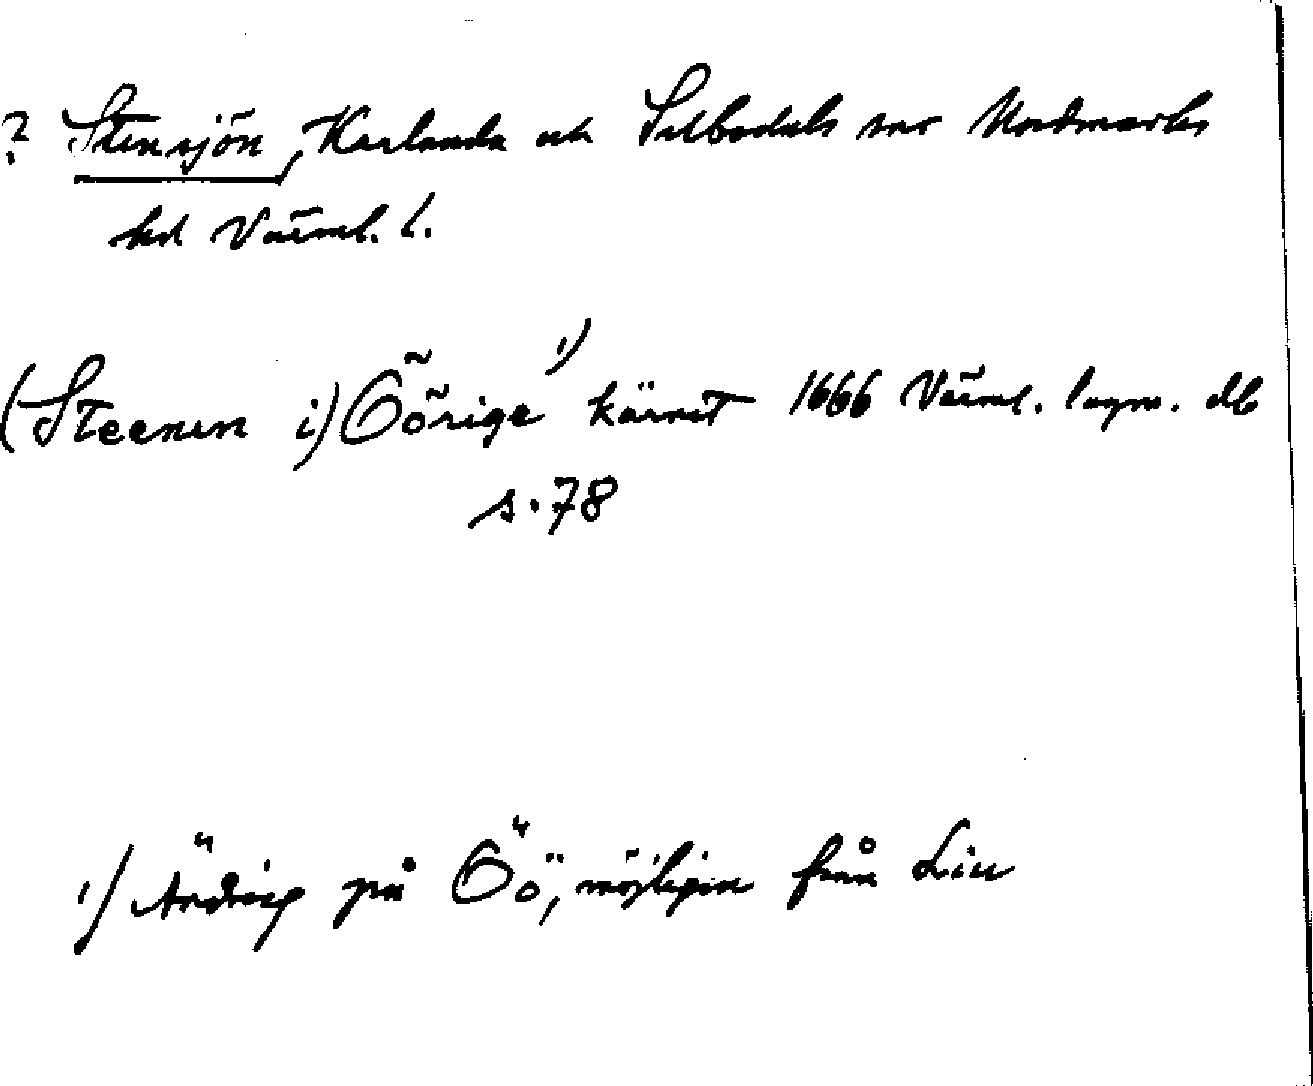 ? Stensjön, Karlanda och Silbodals snr Nordmarks
hd Värml. l.
(Steenen i) Öörige 1) kärnet 1666 Värml. lagm. db
s. 78
1) Ändrig på Öö, möjligen från